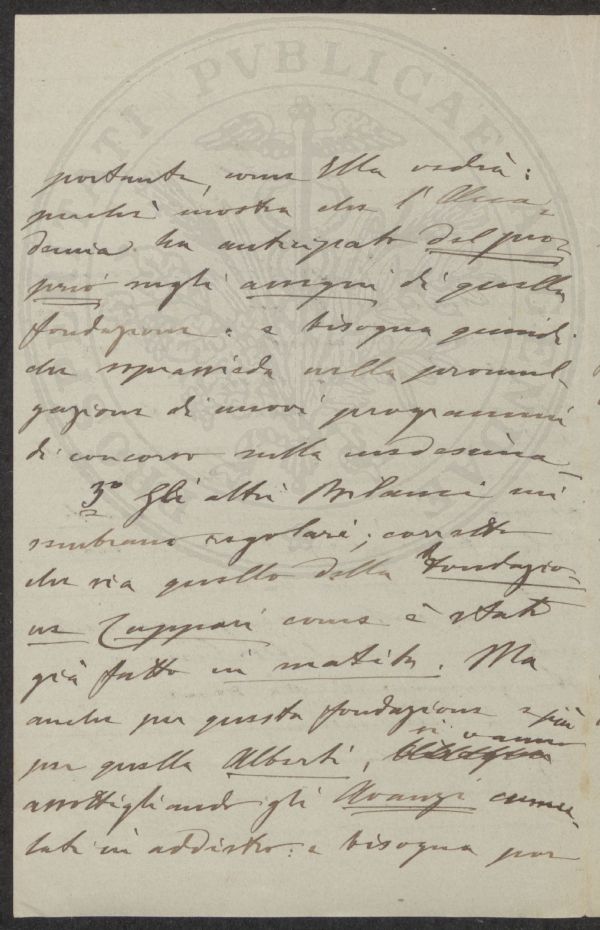 PROSPERITATI PVBLICAE AVGENDAE
portante, come Ella vedrà:
perchè mostra che l'Acca-
demia ha anticipato del pro-
prio sugli assegni di quella
fondazione: e bisogna quindi
che soprassieda nella promul-
gazione di nuovi programmi
di concorso sulla medesima
3º Gli altri Bilanci mi
sembrano regolari; corretto
che sia quello della Fondazio-
ne Cuppari come è stato
già fatto in matita. Ma
anche per questa fondazione e più
per quella Alberti, si vanno
assottigliando gli Avanzi cumu-
lati in addietro: e bisogna por